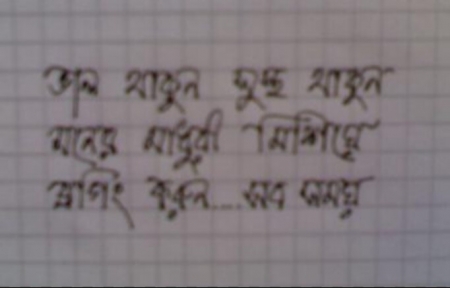 ভাল থাকুন সুস্থ থাকুন
মনের মাধুরী মিশিয়ে
ব্লগিং করুন....সব সময়